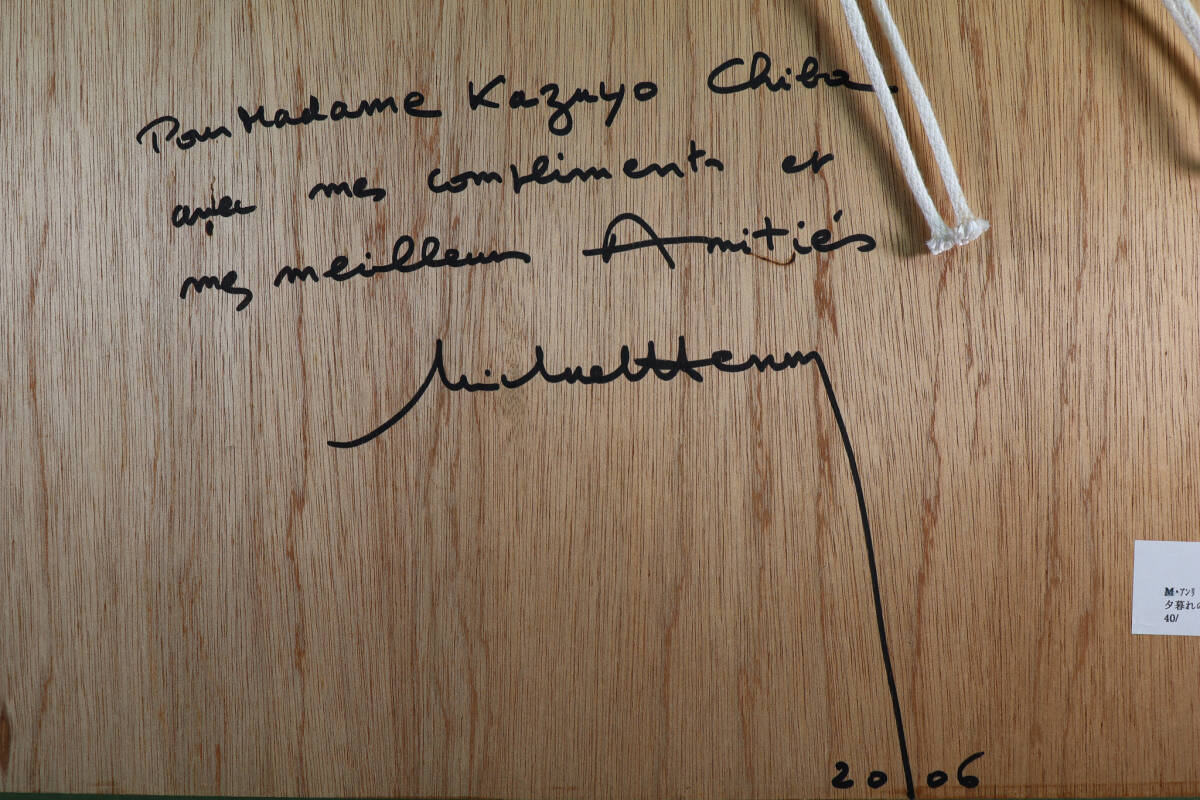 Pour Madame Kazuyo Chiba.
avec mes compliments et
mes meilleurs Amitiés
Michel Henry
2006
M・アンリ
夕暮れの
40/